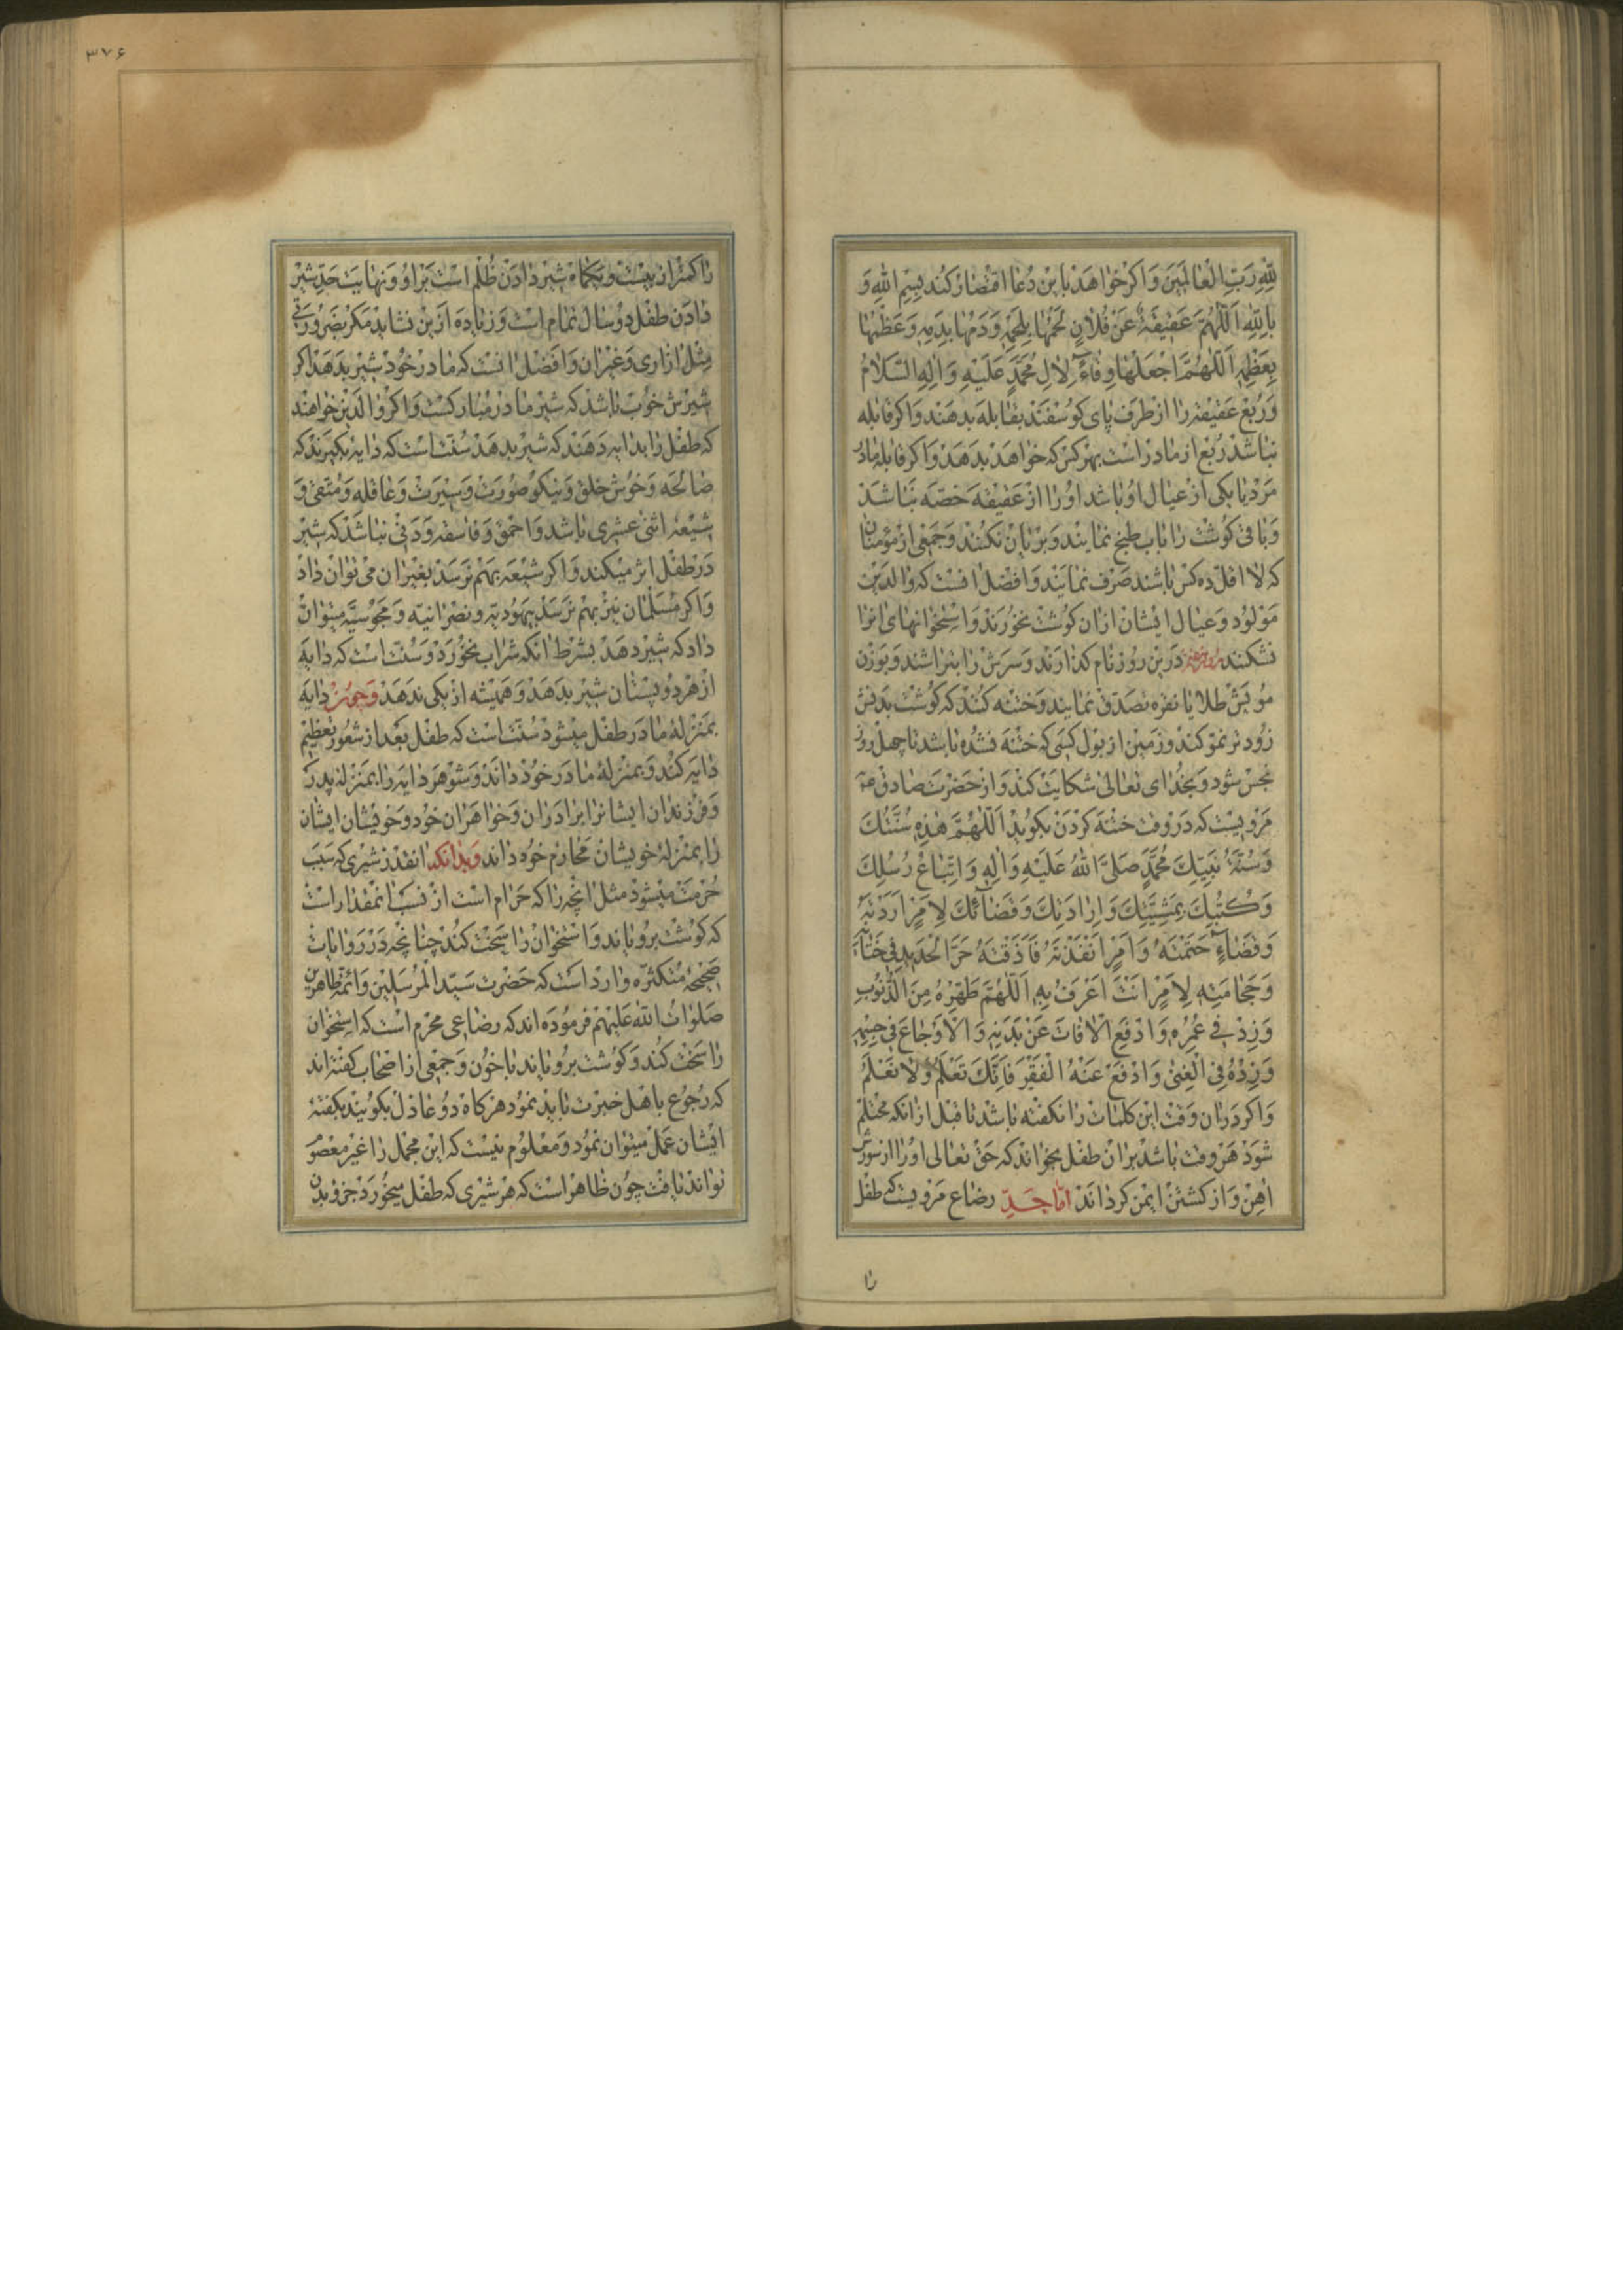 لِلّٰهِ رَبِّ الْعَالَمِینَ وَ اکر خواهد باین دعا اقتصار کند بِسْمِ اللهِ وَ
بِاللهِ اَللّٰهُمَّ عَقِیقَةٌ عَنْ فُلَانٍ لَحْمُهَا بِلَحْمِهِ وَ دَمُهَا بِدَمِهِ وَ عَظْمُهَا
بِعَظْمِهِ اَللّٰهُمَّ اجْعَلْهَا وِقَاءً لِاٰلِ مُحَمَّدٍ عَلَیْهِ وَ اٰلِهِ السَّلَامُ
و ربع عقیقه را از طرف پای کوسفند بقابله بدهند و اکر قابله
نباشد ربع از مادر است بهر کس که خواهد بدهد و اکر قابله مادر
مرد یا یکی از عیال او باشد او را از عقیقه حصه نباشد
و باقی کوشت را باب طبخ نمایند و بریان نکنند و جمعی از مؤمنان
که لا اقل ده کس باشند صرف نمایند و افضل انست که والدین
مولود و عیال ایشان ازان کوشت نخورند و استخوانهای انرا
نشکنند درین روز نام کذارند و سرش را بتراشند و بوزن
مویش طلا یا نقره تصدق نمایند و ختنه کنند که کوشت بدنش
زودتر نمو کند و زمین از بول کسی که ختنه نشده باشد تا چهل روز
نجس شود و بخدای تعالی شکایت کند و از حضرت صادق ع
مرویست که در وقت ختنه کردن بکوید اَللّٰهُمَّ هٰذِهِ سُنَّتُكَ
وَ سُنَّةُ نَبِیِّكَ مُحَمَّدٍ صَلَّی اللهُ عَلَیْهِ وَ اٰلِهِ وَ اتِّبَاعُ رُسُلِكَ
وَ كُتُبِكَ بِمَشِیَّتِكَ وَ اِرَادَتِكَ وَ قَضَائِكَ لِاَمْرٍ اَرَدْتَهُ
وَ قَضَاءٍ حَتَمْتَهُ وَ اَمْرٍ اَنْفَذْتَهُ فَاَذَقْتَهُ حَرَّ الْحَدِیدِ فِی خِتَانِهِ
وَ حِجَامَتِهِ لِاَمْرٍ اَنْتَ اَعْرَفُ بِهِ اَللّٰهُمَّ طَهِّرْهُ مِنَ الذُّنُوبِ
وَ زِدْ فِی عُمُرِهِ وَ ادْفَعِ الْاٰفَاتَ عَنْ بَدَنِهِ وَ الْاَوْجَاعَ فِی جِسْمِهِ
وَ زِدْهُ فِی الْغِنٰی وَ ادْفَعْ عَنْهُ الْفَقْرَ فَاِنَّكَ تَعْلَمُ وَ لَا نَعْلَمُ
و اکر دران وقت این کلمات را نکفته باشد تا قبل ازانکه محتلم
شود هر وقت باشد بران طفل بخواند که حق تعالی او را از سورش
اهن و از کشتن ایمن کرداند اما حدّ رضاع مرویست که طفل
را
۳۷۶
را کمتر از بیست و یکماه شیر دادن ظلم است بر او و نهایت حد شیر
دادن طفل دو سال تمام است و زیاده ازین نشاید مکر بضرورتی
مثل ازاری و غیران و افضل انست که مادر خود شیر بدهد اکر
شیرش خوب باشد که شیر مادر مبارکست و اکر والدین خواهند
که طفل را بدایه دهند که شیر بدهد سنت است که دایه بکیرند که
صالحه و خوش خلق و نیکو صورت و سیرت و عاقله و متقی و
شیعه اثنی عشری باشد و احمق و فاسقه و دنی نباشد که شیر
در طفل اثر میکند و اکر شیعه بهم نرسد بغیران می توان داد
و اکر مسلمان نیز بهم نرسد بیهودیه و نصرانیه و مجوسیه میتوان
داد که شیر دهد بشرط انکه شراب نخورد و سنت است که دایه
از هر دو پستان شیر بدهد و همیشه از یکی ندهد و چون دایه
بمنزله مادر طفل میشود سنت است که طفل بعد از شعور تعظیم
دایه کند و بمنزلهٔ مادر خود داند و شوهر دایه را بمنزله پدر
و فرزندان ایشانرا برادران و خواهران خود و خویشان ایشان
را بمنزلهٔ خویشان محارم خود داند و بدانکه انقدر شیری که سبب
حرمت میشود مثل انچه را که حرام است از نسب انمقدار است
که کوشت برویاند و استخوان را سخت کند چنانچه در روایات
صحیحه متکثره وارد است که حضرت سید المرسلین و ائمه طاهرین
صلوات الله علیهم فرموده اند که رضاعی محرم است که استخوان
را سخت کند و کوشت برویاند با خون و جمعی از اصحاب کفته اند
که رجوع باهل خبرت باید نمود هر کاه دو عادل بکویند بکفتهٔ
ایشان عمل میتوان نمود و معلوم نیست که این مجمل را غیر معصوم
تواند یافت چون ظاهر است که هر شیری که طفل میخورد جزو بدن